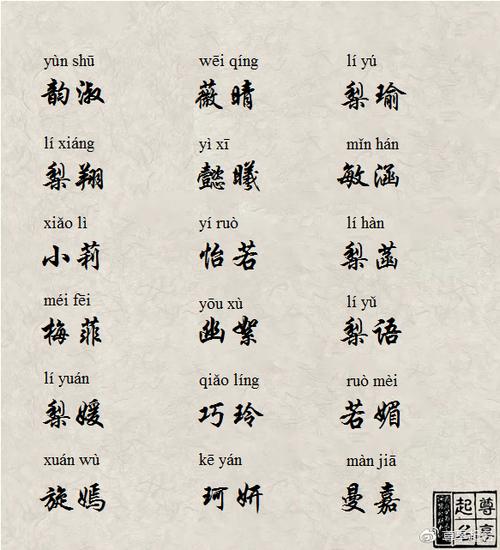 yùn shū wēi qíng lí yú
韵淑 薇晴 梨瑜
lí xiáng yì xī mǐn hán
梨翔 懿曦 敏涵
xiǎo lì yí ruò lí hàn
小莉 怡若 梨菡
méi fēi yōu xù lí yǔ
梅菲 幽絮 梨语
lí yuán qiǎo líng ruò mèi
梨媛 巧玲 若媚
xuán wù kē yán màn jiā
旋嫣 珂妍 曼嘉
尊享
起名